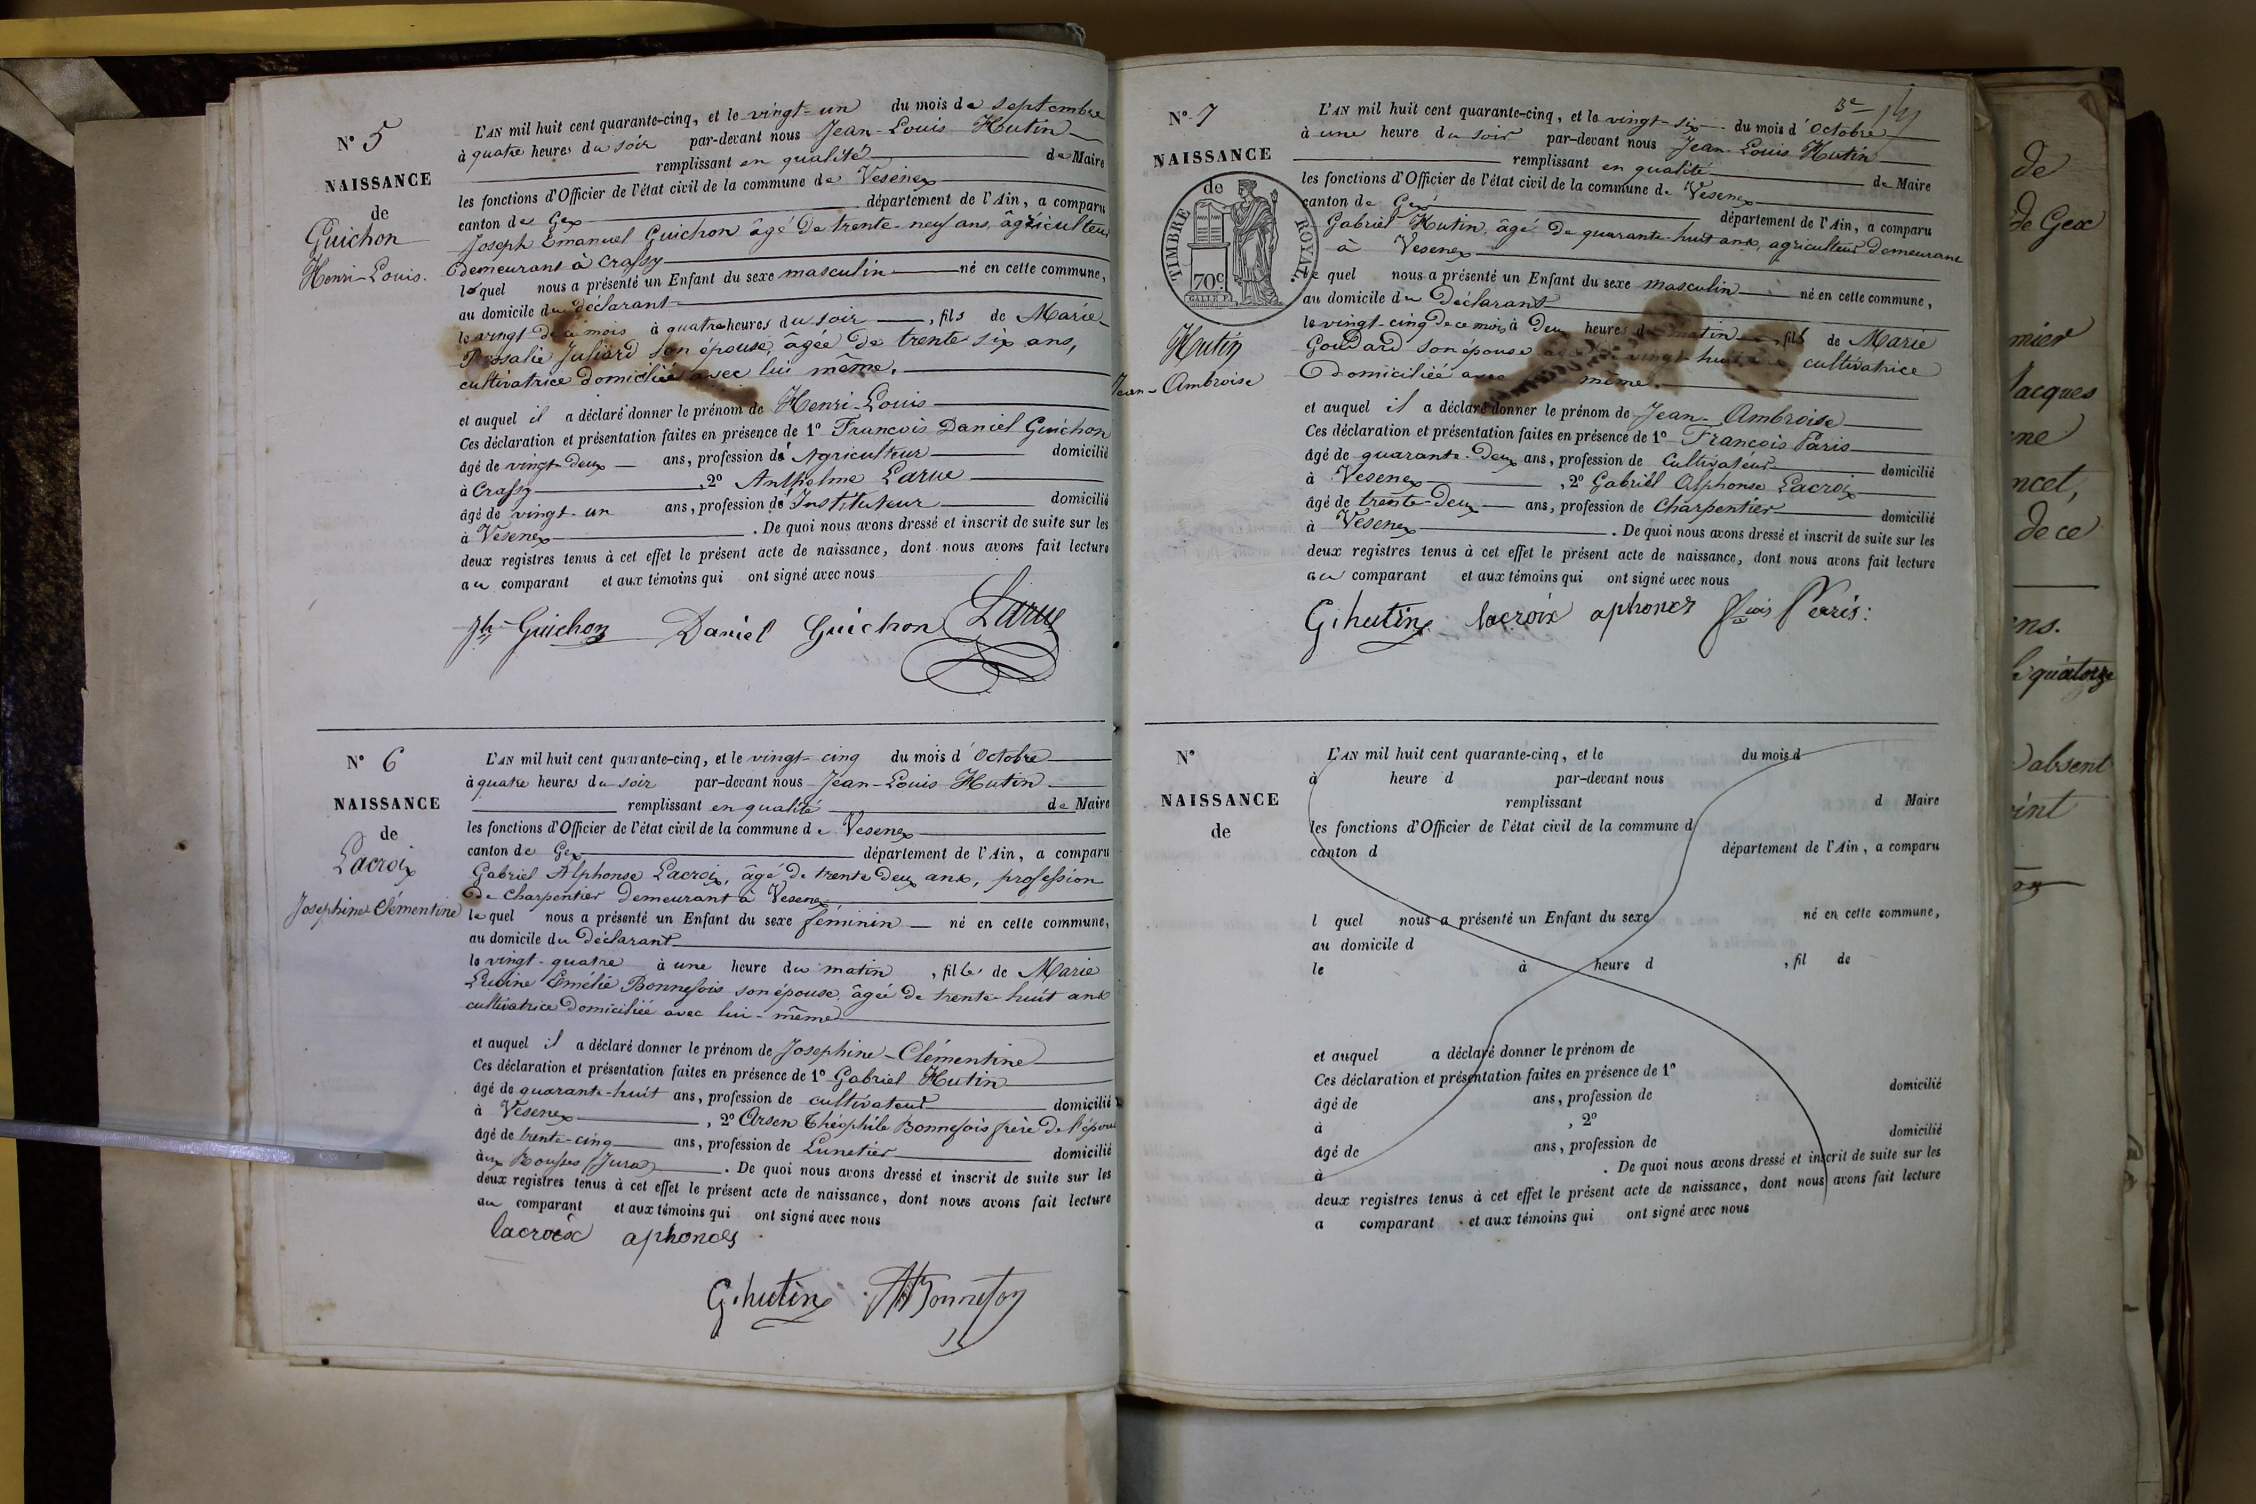 N° 5
NAISSANCE
de
Guichon
Henri-Louis.
L'AN mil huit cent quarante-cinq, et le vingt-un du mois de septembre
à quatre heures du soir par-devant nous Jean-Louis Hutin
remplissant en qualité de Maire
les fonctions d'Officier de l'état civil de la commune de Vesenex
canton de Gex département de l'Ain, a comparu
Joseph Emanuel Guichon âgé de trente-neuf ans, agriculteur
demeurant à Crassy
lequel nous a présenté un Enfant du sexe masculin né en cette commune,
au domicile du déclarant
le vingt de ce mois à quatre heures du soir, fils de Marie
Rosalie Juliard son épouse, âgée de trente six ans,
cultivatrice domiciliée avec lui même.
et auquel il a déclaré donner le prénom de Henri-Louis
Ces déclaration et présentation faites en présence de 1° Francois Daniel Guichon
âgé de vingt-deux ans, profession de Agriculteur domicilié
à Crassy, 2° Anthelme Larue
âgé de vingt-un ans, profession de Instituteur domicilié
à Vesenex. De quoi nous avons dressé et inscrit de suite sur les
deux registres tenus à cet effet le présent acte de naissance, dont nous avons fait lecture
au comparant et aux témoins qui ont signé avec nous
Jh Guichon Daniel Guichon Larue
N° 6
NAISSANCE
de
Lacroix
Josephine Clémentine
L'AN mil huit cent quarante-cinq, et le vingt-cinq du mois d'Octobre
à quatre heures du soir par-devant nous Jean-Louis Hutin
remplissant en qualité de Maire
les fonctions d'Officier de l'état civil de la commune de Vesenex
canton de Gex département de l'Ain, a comparu
Gabriel Alphonse Lacroix, âgé de trente deux ans, profession
de charpentier demeurant à Vesenex
lequel nous a présenté un Enfant du sexe féminin né en cette commune,
au domicile du déclarant
le vingt-quatre à une heure du matin, fille de Marie
Emélie Bonnefois son épouse, âgée de trente-huit ans
cultivatrice domiciliée avec lui-même
et auquel il a déclaré donner le prénom de Josephine-Clémentine
Ces déclaration et présentation faites en présence de 1° Gabriel Hutin
âgé de quarante-huit ans, profession de cultivateur domicilié
à Vesenex, 2° Arsen Théophile Bonnefois frère de l'épouse
âgé de trente-cinq ans, profession de Lunetier domicilié
aux Rousses (Jura). De quoi nous avons dressé et inscrit de suite sur les
deux registres tenus à cet effet le présent acte de naissance, dont nous avons fait lecture
au comparant et aux témoins qui ont signé avec nous
lacroix aphonces
G. hutin Bonnefoy
3e
N° 7
NAISSANCE
de
TIMBRE ROYAL.
70c
Hutin
Jean-Ambroise
L'AN mil huit cent quarante-cinq, et le vingt-six du mois d'Octobre
à une heure du soir par-devant nous Jean-Louis Hutin
remplissant en qualité de Maire
les fonctions d'Officier de l'état civil de la commune de Vesenex
canton de Gex département de l'Ain, a comparu
Gabriel Hutin, âgé de quarante-huit ans, agriculteur demeurant
à Vesenex
le quel nous a présenté un Enfant du sexe masculin né en cette commune,
au domicile du Déclarant
le vingt-cinq de ce mois à deux heures du matin, fils de Marie
Goudard son épouse vingt-huit cultivatrice
domiciliée même.
et auquel il a déclaré donner le prénom de Jean-Ambroise
Ces déclaration et présentation faites en présence de 1° François Paris
âgé de quarante-deux ans, profession de Cultivateur domicilié
à Vesenex, 2° Gabriel Alphonse Lacroix
âgé de trente-deux ans, profession de Charpentier domicilié
à Vesenex. De quoi nous avons dressé et inscrit de suite sur les
deux registres tenus à cet effet le présent acte de naissance, dont nous avons fait lecture
au comparant et aux témoins qui ont signé avec nous
G. hutin lacroix aphonces
N°
NAISSANCE
de
L'AN mil huit cent quarante-cinq, et le du mois d
à heure d par-devant nous
remplissant d Maire
les fonctions d'Officier de l'état civil de la commune d
canton d département de l'Ain, a comparu
l quel nous a présenté un Enfant du sexe né en cette commune,
au domicile d
le à heure d , fil de
et auquel a déclaré donner le prénom de
Ces déclaration et présentation faites en présence de 1°
âgé de ans, profession de domicilié
à , 2°
âgé de ans, profession de domicilié
à . De quoi nous avons dressé et inscrit de suite sur les
deux registres tenus à cet effet le présent acte de naissance, dont nous avons fait lecture
a comparant et aux témoins qui ont signé avec nous
de
de Gex
mier
Jacques
ne
ncet,
de ce
ens.
quatorze
absent
int